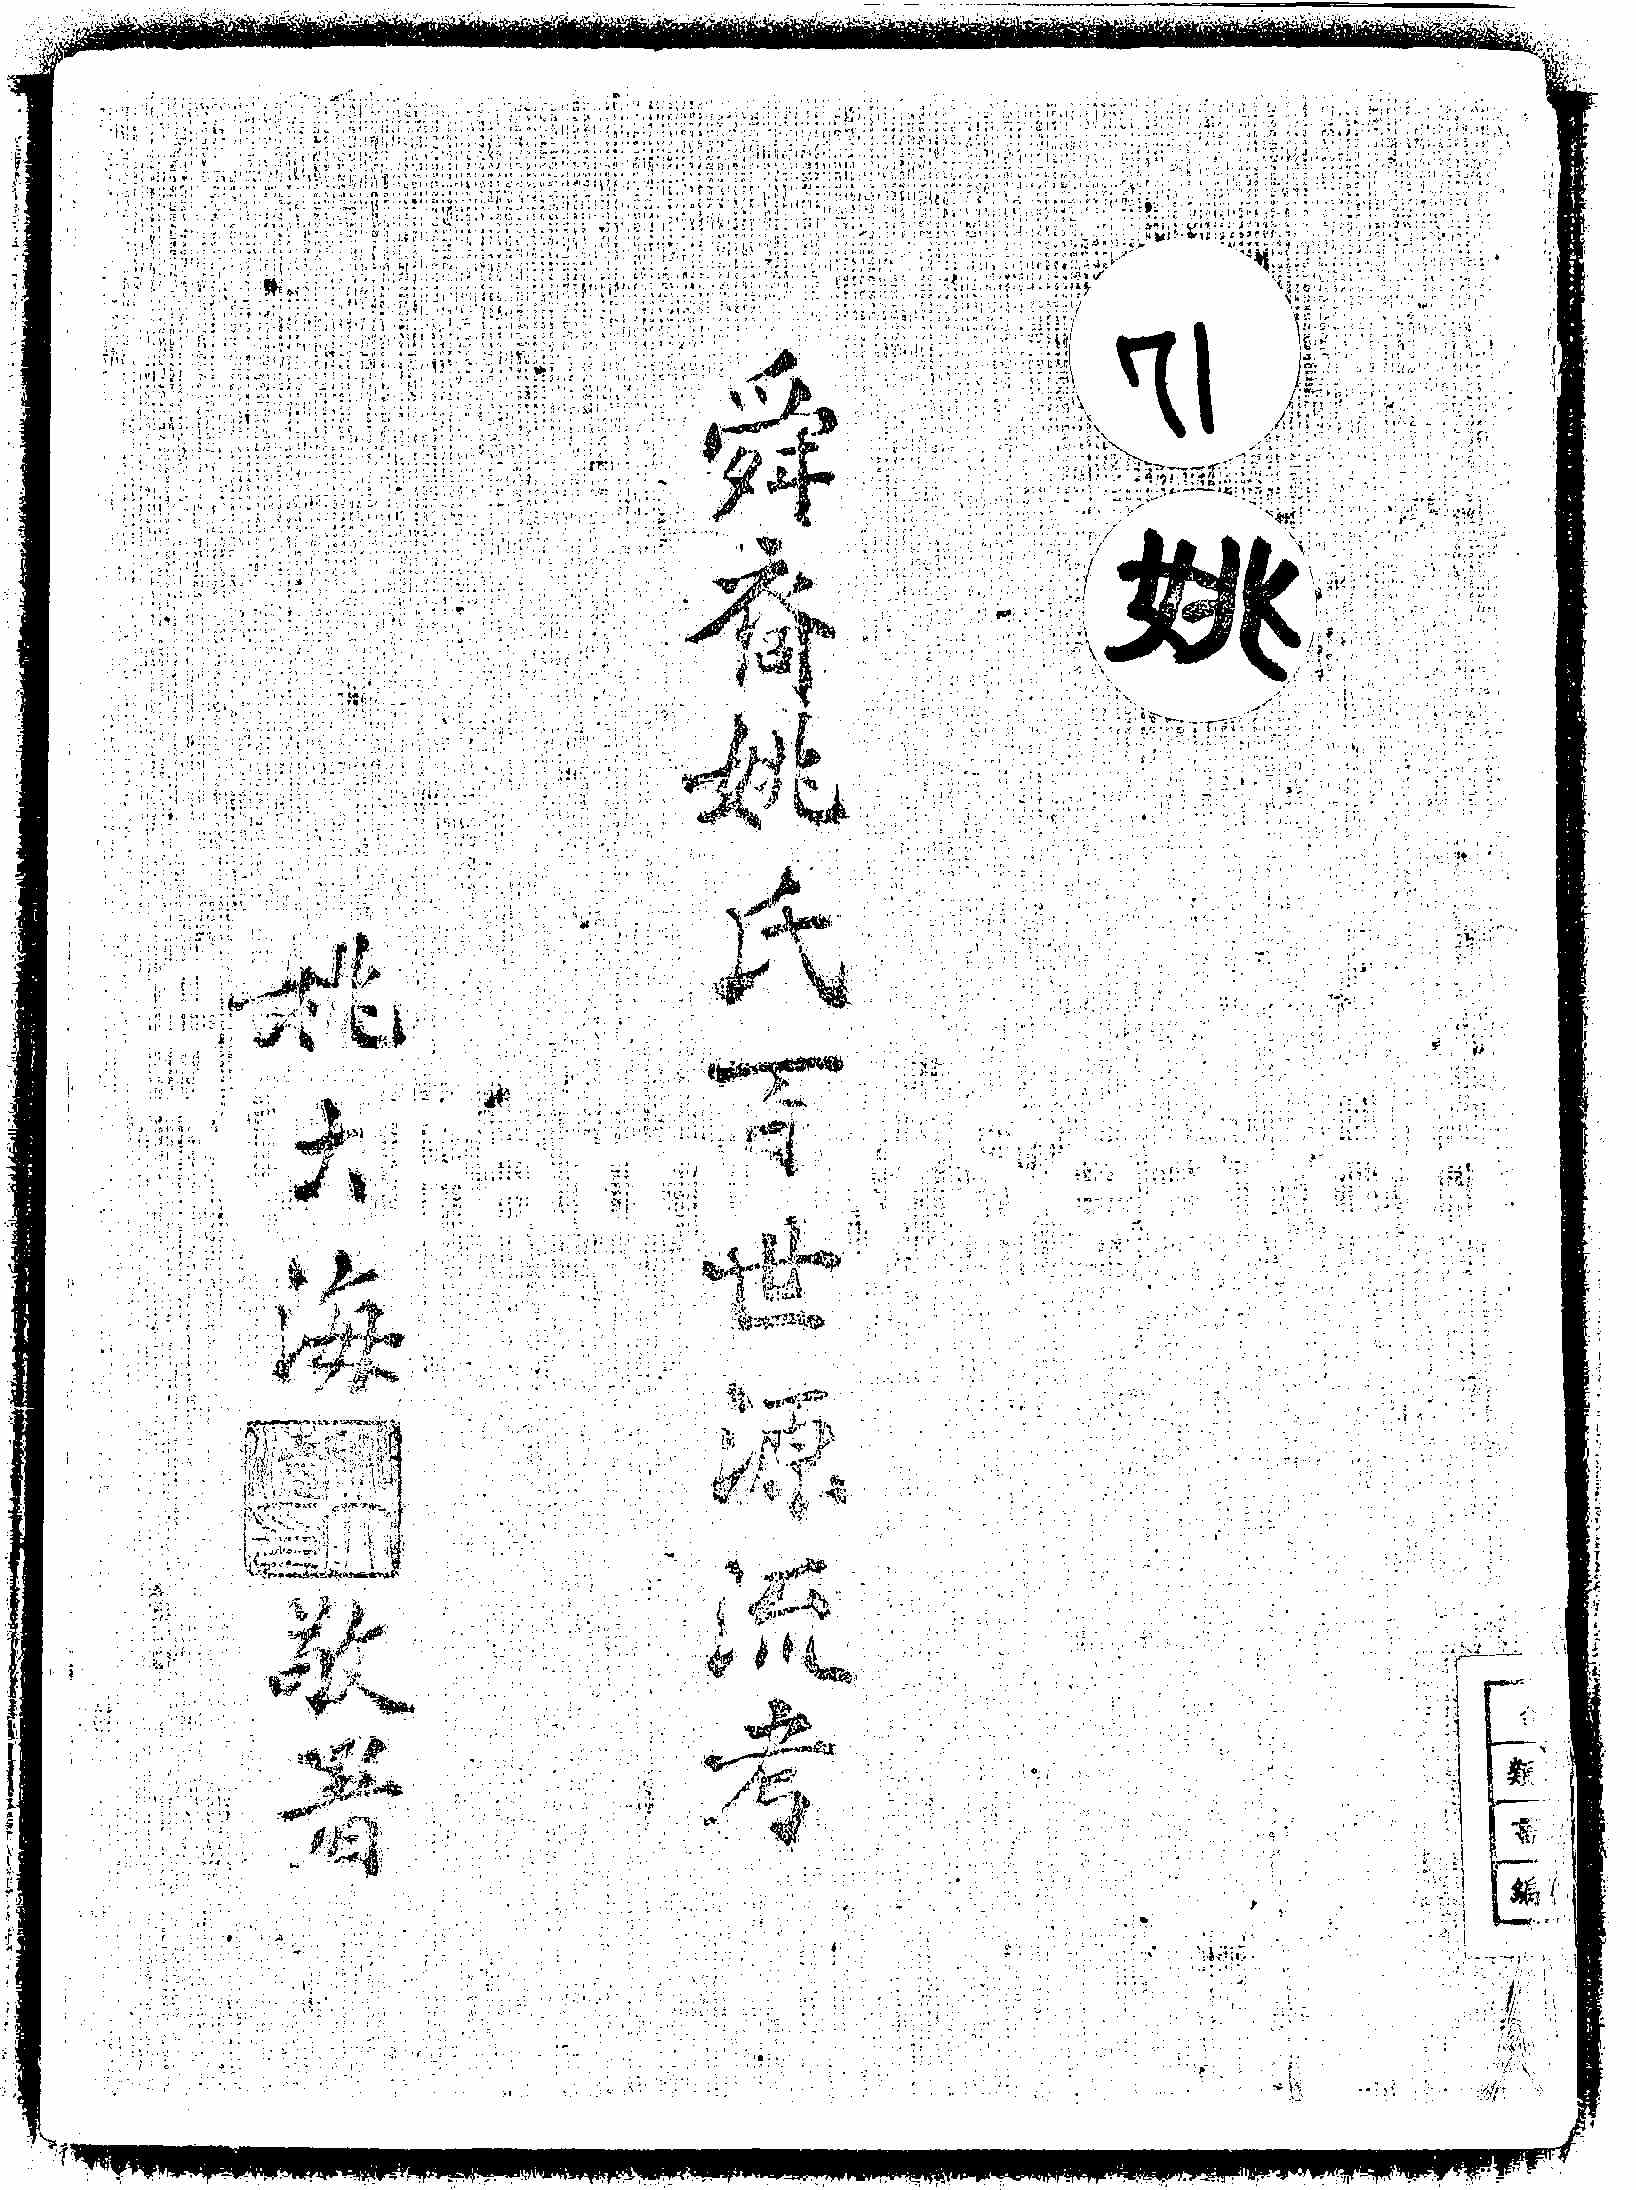 71
姚
舜裔姚氏百世源流考
姚大海敬著
類
編